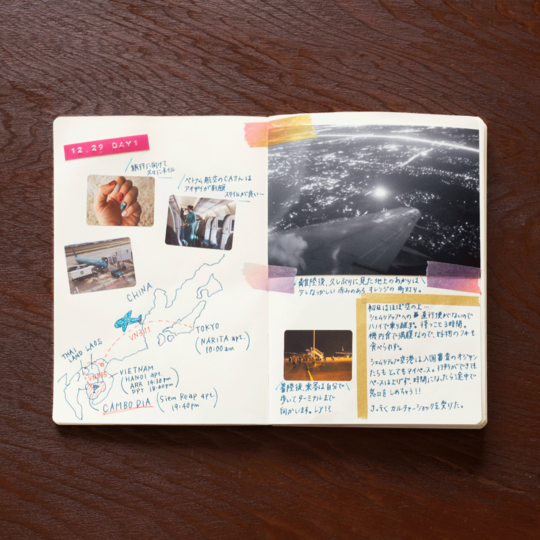 12.29 DAY1
旅行に向けて
ベトナム航空のCAさんは
アオザイが制服
スタイルが良い…
CHINA
VN311
TOKYO
(NARITA apt.
10:00am)
THAI
LAND
LAOS
VIETNAM
(HANOI apt.
ARR 14:30pm
DPT 18:00pm)
CAMBODIA
(Siem Reap apt.
19:40pm)
離陸後、久しぶりに見た地上のあかりは
少しなつかしい赤みのある オレンジの
着陸後、乗客は自分で
歩いてターミナルまで
向かいます。
初日はほぼ空の上…
シェムリアップへの直行便がないので
ハノイで乗り継ぎ。待つこと3時間。
機内食で満腹なのに、
食べられず。
シェムリアップ空港は入国審査のオジサン
たちもとてもマイペース。行列ができても
ペースは上げず、時間になったら途中で
窓口をしめちゃう!!
さっそくカルチャーショックを受けた。